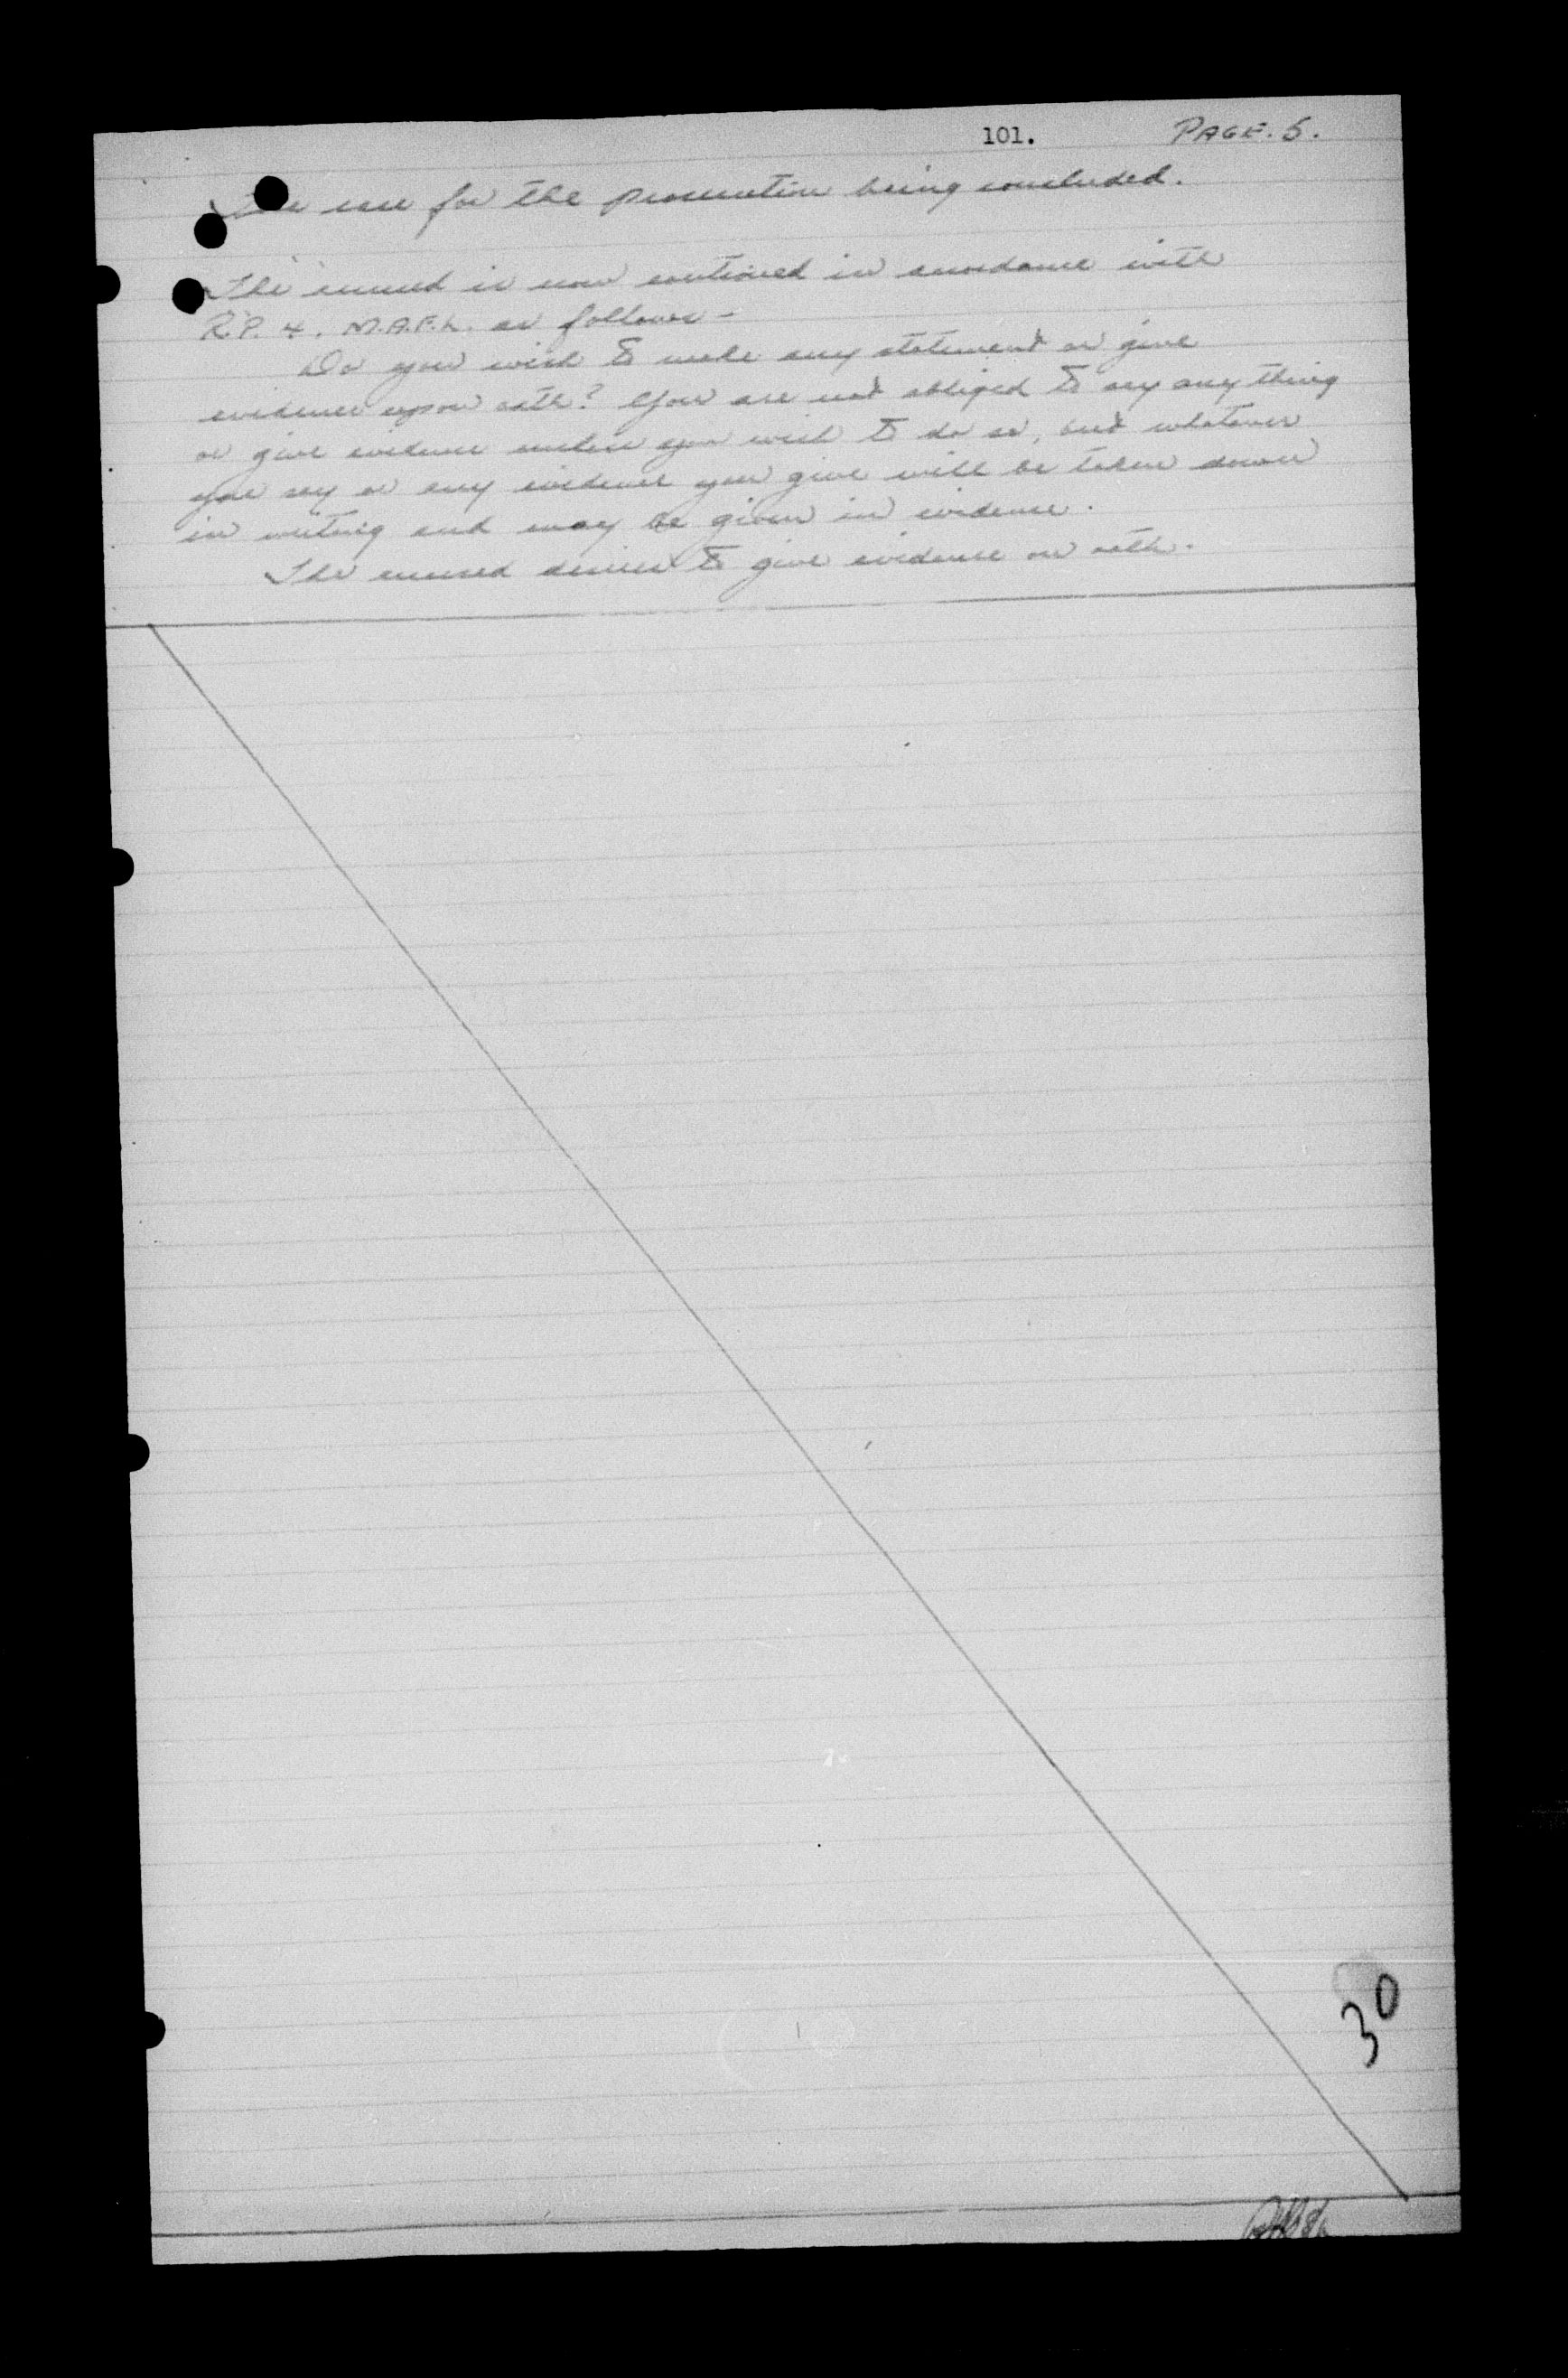 101. PAGE. 5.
The case for the prosecution being concluded.
The accused is now cautioned in accordance with
R.P. 4. M.A.F.L. as follows -
Do you wish to make any statement or give
evidence upon oath? You are not obliged to say any thing
or give evidence unless you wish to do so, but whatever
you say or any evidence you give will be taken down
in writing and may be given in evidence.
The accused desires to give evidence on oath.
30